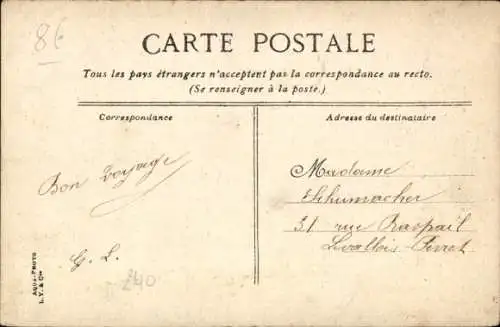 86
CARTE POSTALE
Tous les pays étrangers n'acceptent pas la correspondance au recto.
(Se renseigner à la poste.)
Correspondance
Adresse du destinataire
Bon voyage
G. L.
240
Madame
Schumacher
31 rue Raspail
Levallois-Perret
AQUA-PHOTO
L. V. & Cie